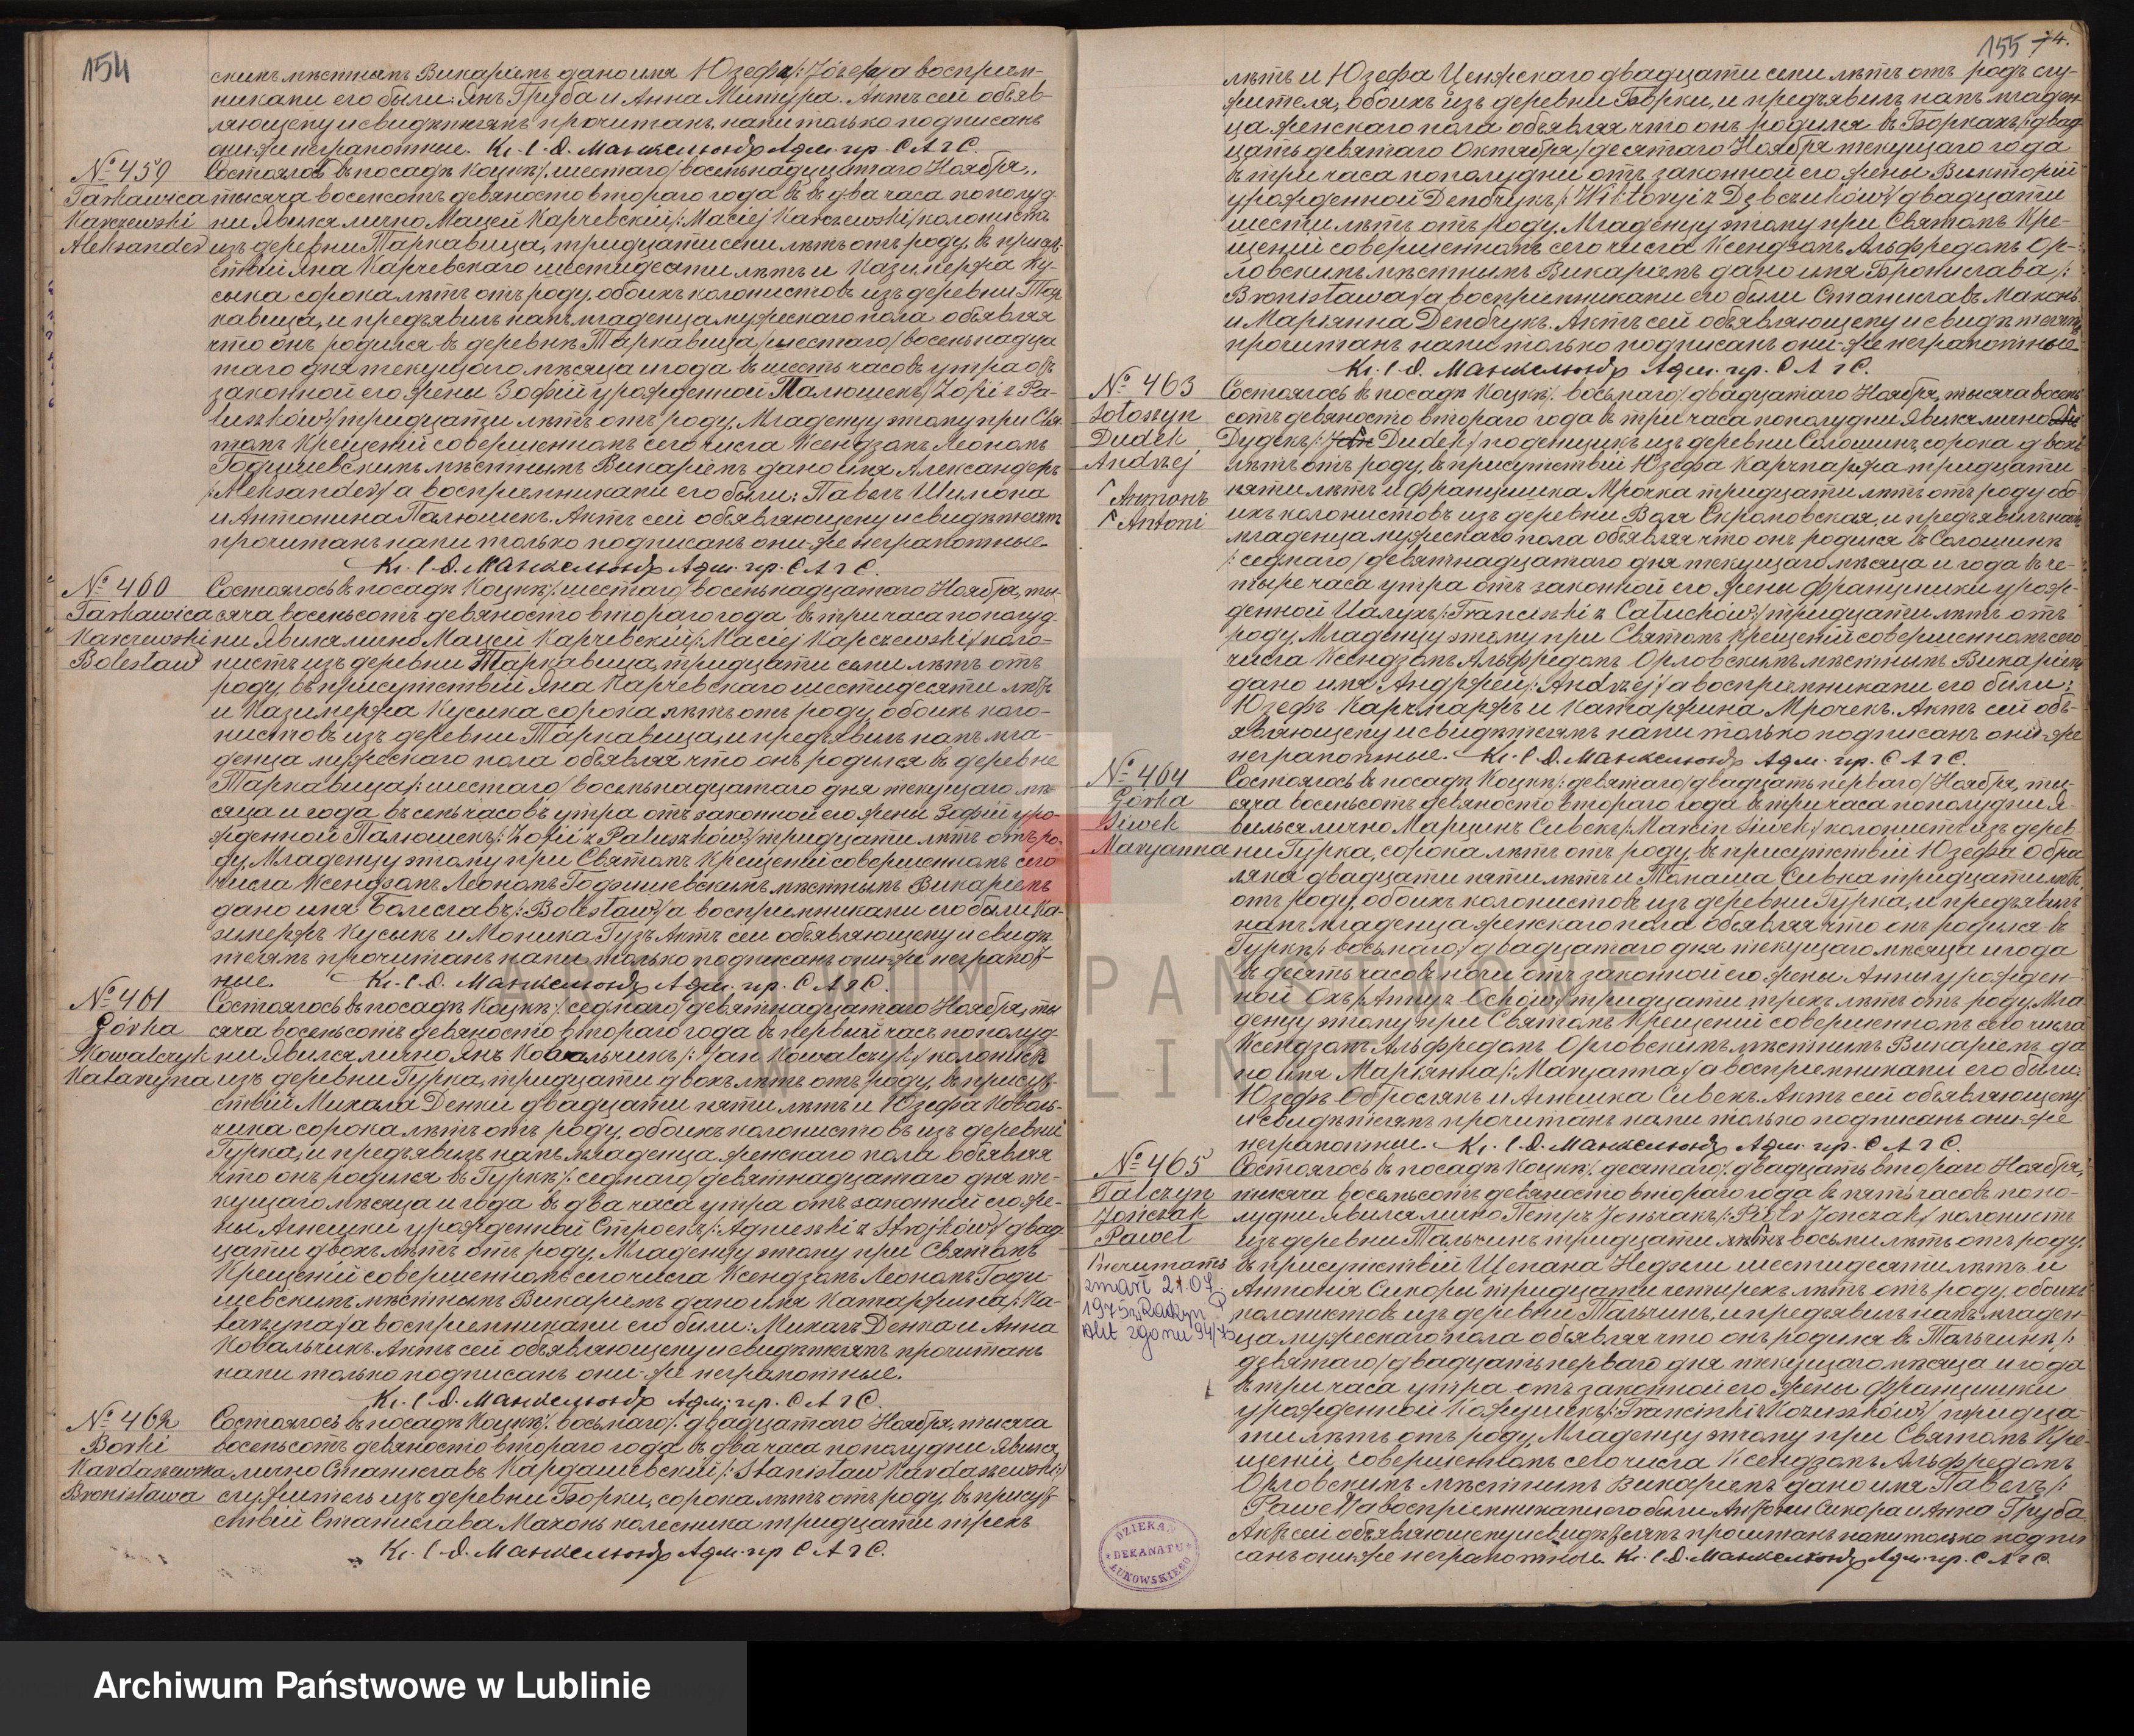 154
скимъ мѣстнымъ Викаріемъ дано имя Юзефъ /:Józef:/ а воспріем-
никами его были: Янъ Груба и Анна Митура. Актъ сей объяв-
ляющему и свидѣтелямъ прочитанъ, нами только подписанъ
они-же неграмотные. Кс. С. О. Манкельюндъ Адм. пр. С А г С.
№ 459
Tarkawica
Karczewski
Aleksander
Состоялось въ посадѣ Коцкѣ /: шестаго / восемьнадцатаго Ноября,
тысяча восемсотъ девяносто втораго года въ два часа пополуд-
ни. Явился лично Мацей Карчевскій /: Maciej Karczewski:/ колонистъ
изъ деревни Таркавица, тридцати семи лѣтъ отъ роду, въ присут-
ствіи Яна Карчевскаго шестидесяти лѣтъ и Казимержа Ку-
сыка сорока лѣтъ отъ роду, обоихъ колонистовъ изъ деревни Тар-
кавица, и предъявилъ намъ младенца мужескаго пола объявляя
что онъ родился въ деревнѣ Таркавица /шестаго/ восемьнадца-
таго дня текущаго мѣсяца и года въ шесть часовъ утра отъ
законной его жены Зофіи урожденной Палюшекъ /:Zofii z Pa-
luszków:/ тридцати лѣтъ отъ роду. Младенцу этому при Свя-
томъ Крещеніи совершенномъ сего числа Ксендзомъ Леономъ
Годзишевскимъ мѣстнымъ Викаріемъ дано имя Александеръ
/:Aleksander:/ а воспріемниками его были: Павелъ Шимона
и Антонина Палюшекъ. Актъ сей объявляющему и свидѣтелямъ
прочитанъ нами только подписанъ они-же неграмотные.
Кс. С. О. Манкельюндъ Адм. пр. С А г С.
№ 460
Tarkawica
Karczewski
Bolesław
Состоялось въ посадѣ Коцкѣ /: шестаго / восемьнадцатаго Ноября, ты-
сяча восемьсотъ девяносто втораго года въ три часа пополуд-
ни. Явился лично Мацей Карчевскій /: Maciej Karczewski:/ коло-
нистъ изъ деревни Таркавица, тридцати семи лѣтъ отъ
роду, въ присутствіи Яна Карчевскаго шестидесяти лѣтъ
и Казимержа Кусыка сорока лѣтъ отъ роду, обоихъ коло-
нистовъ изъ деревни Таркавица, и предъявилъ намъ мла-
денца мужескаго пола объявляя что онъ родился въ деревне
Таркавица /: шестаго / восемьнадцатаго дня текущаго мѣ-
сяца и года въ семь часовъ утра отъ законной его жены Зофіи уро-
жденной Палюшекъ /: Zofii z Paluszków:/ тридцати лѣтъ отъ ро-
ду. Младенцу этому при Святомъ Крещеніи совершенномъ сего
числа Ксендзомъ Леономъ Годзишевскимъ мѣстнымъ Викаріемъ
дано имя Болеславъ /: Bolesław:/ а воспріемниками его были Ка-
зимержъ Кусыкъ и Моника Гузъ. Актъ сей объявляющему и свидѣ-
телямъ прочитанъ нами только подписанъ они-же неграмот-
ные. Кс. С. О. Манкельюндъ Адм. пр. С А г С.
№ 461
Górka
Kowalczyk
Katarzyna
Состоялось въ посадѣ Коцкѣ /: седмаго / девятнадцатаго Ноября, ты-
сяча восемьсотъ девяносто втораго года въ первый часъ пополуд-
ни. Явился лично Янъ Ковальчикъ /: Jan Kowalczyk:/ колонистъ
изъ деревни Гурка, тридцати двохъ лѣтъ отъ роду, въ присут-
ствіи Михала Денки двадцати пяти лѣтъ и Юзефа Коваль-
чика сорока лѣтъ отъ роду, обоихъ колонистовъ изъ деревни
Гурка, и предъявилъ намъ младенца женскаго пола объявляя
что онъ родился въ Гуркѣ /: седмаго / девятнадцатаго дня те-
кущаго мѣсяца и года въ два часа утра отъ законной его же-
ны Агнешки урожденной Строекъ /: Agnieszki z Strojków:/ двад-
цати двохъ лѣтъ отъ роду. Младенцу этому при Святомъ
Крещеніи совершенномъ сего числа Ксендзомъ Леономъ Годзи-
шевскимъ мѣстнымъ Викаріемъ дано имя Катаржина /: Ka-
tarzyna:/ а воспріемниками его были: Михалъ Денка и Анна
Ковальчикъ. Актъ сей объявляющему и свидѣтелямъ прочитанъ
нами только подписанъ они-же неграмотные.
Кс. С. О. Манкельюндъ Адм. пр. С А г С.
№ 462
Borki
Kardaszewska
Bronisława
Состоялось въ посадѣ Коцкѣ /: восьмаго /: двадцатаго Ноября, тысяча
восемьсотъ девяносто втораго года въ два часа пополудни. Явился
лично Станиславъ Кардашевскій /: Stanisław Kardaszewski:/
служитель изъ деревни Борки, сорока лѣтъ отъ роду, въ присут-
ствіи Станислава Махонь колесника тридцати трехъ
Кс. С. О. Манкельюндъ Адм. пр С А г С.
155 74.
лѣтъ и Юзефа Ценжскаго двадцати семи лѣтъ отъ роду слу-
жителя, обоихъ изъ деревни Борки, и предъявилъ намъ младен-
ца женскаго пола объявляя что онъ родился въ Боркахъ /: двад-
цать девятаго Октября / десятаго Ноября текущаго года
въ три часа пополудни отъ законной его жены Викторіи
урожденной Дембчукъ /: Wiktoryi z Dębczuków:/ двадцати
шести лѣтъ отъ роду. Младенцу этому при Святомъ Кре-
щеніи совершенномъ сего числа Ксендзомъ Альфредомъ Ор-
ловскимъ мѣстнымъ Викаріемъ дано имя Бронислава /:
Bronisława:/ а воспріемниками его были Станиславъ Махонь
и Маріянна Дембчукъ. Актъ сей объявляющему и свидѣтелямъ
прочитанъ нами только подписанъ они-же неграмотные
Кс. С. О. Манкельюндъ Адм. пр. С А г С.
№ 463
Sołoszyn
Dudek
Andrzej
Антонъ
Antoni
Состоялось въ посадѣ Коцкѣ /: восьмаго /: двадцатаго Ноября, тысяча восемь-
сотъ девяносто втораго года въ три часа пополудни. Явился лично
Дудекъ /: Dudek:/ поденщикъ изъ деревни Солошинъ, сорока двохъ
лѣтъ отъ роду, въ присутствіи Юзефа Карчмаржа тридцати
пяти лѣтъ и Францишка Мрочка тридцати лѣтъ отъ роду обо-
ихъ колонистовъ изъ деревни Воля Скромовская, и предъявилъ намъ
младенца мужескаго пола объявляя что онъ родился въ Солошинѣ
/: седмаго / девятнадцатаго дня текущаго мѣсяца и года въ че-
тыре часа утра отъ законной его жены Францишки урож-
денной Цалухъ /: Franciszki z Całuchów:/ тридцати лѣтъ отъ
роду. Младенцу этому при Святомъ Крещеніи совершенномъ сего
числа Ксендзомъ Альфредомъ Орловскимъ мѣстнымъ Викаріемъ
дано имя Андржей /: Andrzej:/ а воспріемниками его были:
Юзефъ Карчмаржъ и Катаржина Мрочекъ. Актъ сей объ-
являющему и свидѣтелямъ нами только подписанъ они-же
неграмотные. Кс. С. О. Манкельюндъ Адм. пр. С А г С.
№ 464
Górka
Siwek
Maryanna
Состоялось въ посадѣ Коцкѣ /: девятаго / двадцать перваго / Ноября, ты-
сяча восемьсотъ девяносто втораго года въ три часа пополудни. Я-
вилься лично Марцинъ Сивекъ /: Marcin Siwek:/ колонистъ изъ дерев-
ни Гурка, сорока лѣтъ отъ роду, въ присутствіи Юзефа Обра-
ляка двадцати пяти лѣтъ и Томаша Сивка тридцати лѣтъ
отъ роду, обоихъ колонистовъ изъ деревни Гурка, и предъявилъ
намъ младенца женскаго пола объявляя что онъ родился въ
Гуркѣ /: восьмаго /: двадцатаго дня текущаго мѣсяца и года
въ десять часовъ ночи отъ законной его жены Анны урожден-
ной Охъ /: Anny z Ochów:/ тридцати трехъ лѣтъ отъ роду. Мла-
денцу этому при Святомъ Крещеніи совершенномъ сего числа
Ксендзомъ Альфредомъ Орловскимъ мѣстнымъ Викаріемъ да-
но имя Маріянна /: Maryanna:/ а воспріемниками его были:
Юзефъ Оброслякъ и Агнешка Сивекъ. Актъ сей объявляющему
и свидѣтелямъ прочитанъ нами только подписанъ они-же
неграмотные. Кс. С. О. Манкельюндъ Адм. пр. С А г С.
№ 465
Talczyn
Jończak
Paweł
zmarł 21.07.
1975r. Radzyn P
akt zgonu 94/75
Состоялось въ посадѣ Коцкѣ /: десятаго /: двадцать втораго Ноября,
тысяча восемьсотъ девяносто втораго года въ пять часовъ попо-
лудни. Явился лично Петръ Іоньчакъ /: Piotr Jończak:/ колонистъ
изъ деревни Тальчинъ тридцати восьми лѣтъ отъ роду,
въ присутствіи Щепана Недзели шестидесяти лѣтъ и
Антонія Сикоры тридцати четырехъ лѣтъ отъ роду, обоихъ
колонистовъ изъ деревни Тальчинъ, и предъявилъ намъ младен-
ца мужескаго пола объявляя что онъ родился въ Тальчинѣ /:
девятаго / двадцать перваго дня текущаго мѣсяца и года
въ три часа утра отъ законной его жены Францишки
урожденной Кожушекъ /: Franciszki z Kożuszków:/ тридца-
ти лѣтъ отъ роду. Младенцу этому при Святомъ Кре-
щеніи совершенномъ сего числа Ксендзомъ Альфредомъ
Орловскимъ мѣстнымъ Викаріемъ дано имя Павелъ /:
Paweł:/ а воспріемниками его были Антоній Сикора и Анна Груба.
Актъ сей объявляющему и свидѣтелямъ прочитанъ нами только подпи-
санъ они же неграмотные. Кс. С. О. Манкельюндъ Адм. пр. С А г С.
DZIEKAN
DEKANATU
ŁUKOWSKIEGO
ARCHIWUM PAŃSTWOWE
W LUBLINIE
Archiwum Państwowe w Lublinie